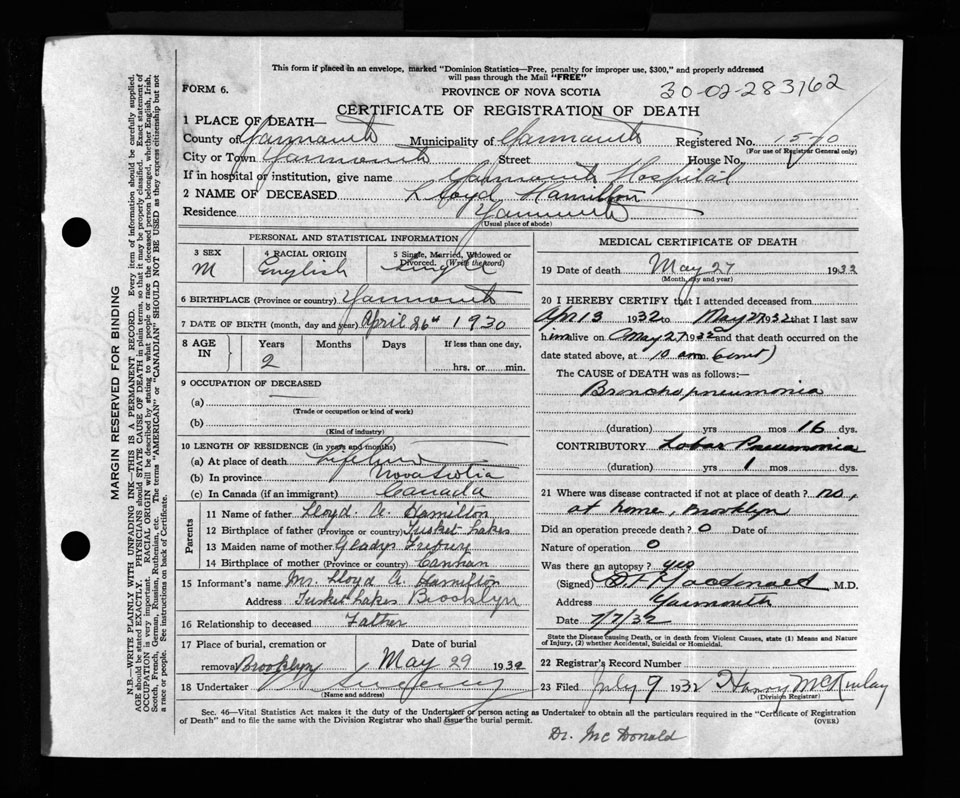 This form if placed in an envelope, marked "Dominion Statistics—Free, penalty for improper use, $300," and properly addressed
will pass through the Mail "FREE"
FORM 6.
PROVINCE OF NOVA SCOTIA
30-02-283762
CERTIFICATE OF REGISTRATION OF DEATH
1 PLACE OF DEATH—
County of Yarmouth Municipality of Yarmouth Registered No.
(For use of Registrar General only)
City or Town Yarmouth Street House No.
If in hospital or institution, give name Yarmouth Hospital
2 NAME OF DECEASED Lloyd Hamilton
Residence Yarmouth
(Usual place of abode)
PERSONAL AND STATISTICAL INFORMATION
3 SEX 4 RACIAL ORIGIN 5 Single, Married, Widowed or
Divorced. (Write the word)
M English Single
6 BIRTHPLACE (Province or country) Yarmouth
7 DATE OF BIRTH (month, day and year) April 26th 1930
8 AGE IN Years Months Days If less than one day,
2 hrs. or min.
9 OCCUPATION OF DECEASED
(a)
(Trade or occupation or kind of work)
(b)
(Kind of industry)
10 LENGTH OF RESIDENCE (in years and months)
(a) At place of death Lifetime
(b) In province Nova Scotia
(c) In Canada (if an immigrant) Canada
Parents
11 Name of father Lloyd. A. Hamilton
12 Birthplace of father (Province or country) Tusket Lakes
13 Maiden name of mother Gladys
14 Birthplace of mother (Province or country)
15 Informant's name Mr. Lloyd A. Hamilton
Address Tusket Lakes Brooklyn
16 Relationship to deceased Father
17 Place of burial, cremation or Date of burial
removal Brooklyn May 29 1932
18 Undertaker Sweeny
(Name and address)
MEDICAL CERTIFICATE OF DEATH
19 Date of death May 27 1932
(Month, day and year)
20 I HEREBY CERTIFY that I attended deceased from
1932 to May 27 1932 that I last saw
him alive on May 27 1932 and that death occurred on the
date stated above, at 10 a.m.
The CAUSE of DEATH was as follows:—
Bronchopneumonia
(duration) yrs mos 16 dys.
CONTRIBUTORY Lobar Pneumonia
(duration) yrs 1 mos dys.
21 Where was disease contracted if not at place of death? no,
at home, Brooklyn
Did an operation precede death? 0 Date of
Nature of operation 0
Was there an autopsy? yes
(Signed) Macdonald M.D.
Address Yarmouth
Date 7/7/32
State the Disease Causing Death, or in death from Violent Causes, state (1) Means and Nature
of Injury, (2) whether Accidental, Suicidal or Homicidal.
22 Registrar's Record Number
23 Filed July 9 1932 Harry McKinlay
(Division Registrar)
Sec. 46—Vital Statistics Act makes it the duty of the Undertaker or person acting as Undertaker to obtain all the particulars required in the "Certificate of Registration
of Death" and to file the same with the Division Registrar who shall issue the burial permit.
(OVER)
Dr. McDonald
MARGIN RESERVED FOR BINDING
N.B.—WRITE PLAINLY WITH UNFADING INK—THIS IS A PERMANENT RECORD. Every item of information should be carefully supplied.
AGE should be stated EXACTLY. PHYSICIANS should STATE CAUSE OF DEATH in plain terms, so that it may be properly classified. Exact statement of
OCCUPATION is very important. RACIAL ORIGIN will be described by stating to what people or race the deceased person belonged, whether English, Irish,
Scotch, French, German, Russian, Ruthenian, etc. The terms "AMERICAN" or "CANADIAN" SHOULD NOT BE USED as they express citizenship but not
a race or people. See instructions on back of Certificate.